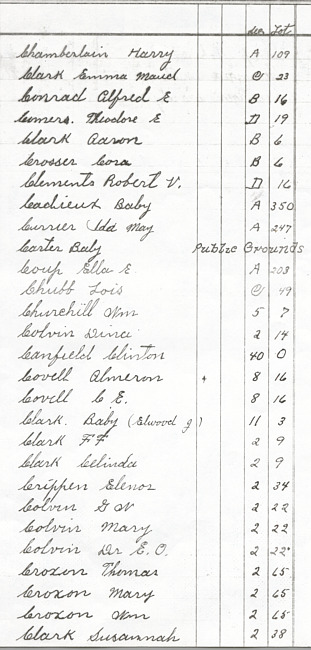 Sec Lot
Chamberlain Harry A 109
Clark Emma Maud C 23
Conrad Alfred E B 16
Comers. Theodore E D 19
Clark Aaron B 6
Crosser Cora B 6
Clements Robert V. D 16
Cadieux Baby A 350
Currier Ida May A 247
Carter Baby Public Grounds
Coup Ella E A 203
Chubb Lois C 49
Churchill Wm 5 7
Colvin Dinci 2 14
Canfield Clinton 40 0
Covell Almeron 8 16
Covell C E. 8 16
Clark. Baby (Elwood g) 11 3
Clark F F 2 9
Clark Celinda 2 9
Crippen Elenor 2 34
Colvin G W 2 22
Colvin Mary 2 22
Colvin Dr E. O. 2 22
Croxon Thomas 2 65
Croxon Mary 2 65
Croxon Wm 2 65
Clark Susannah 2 38